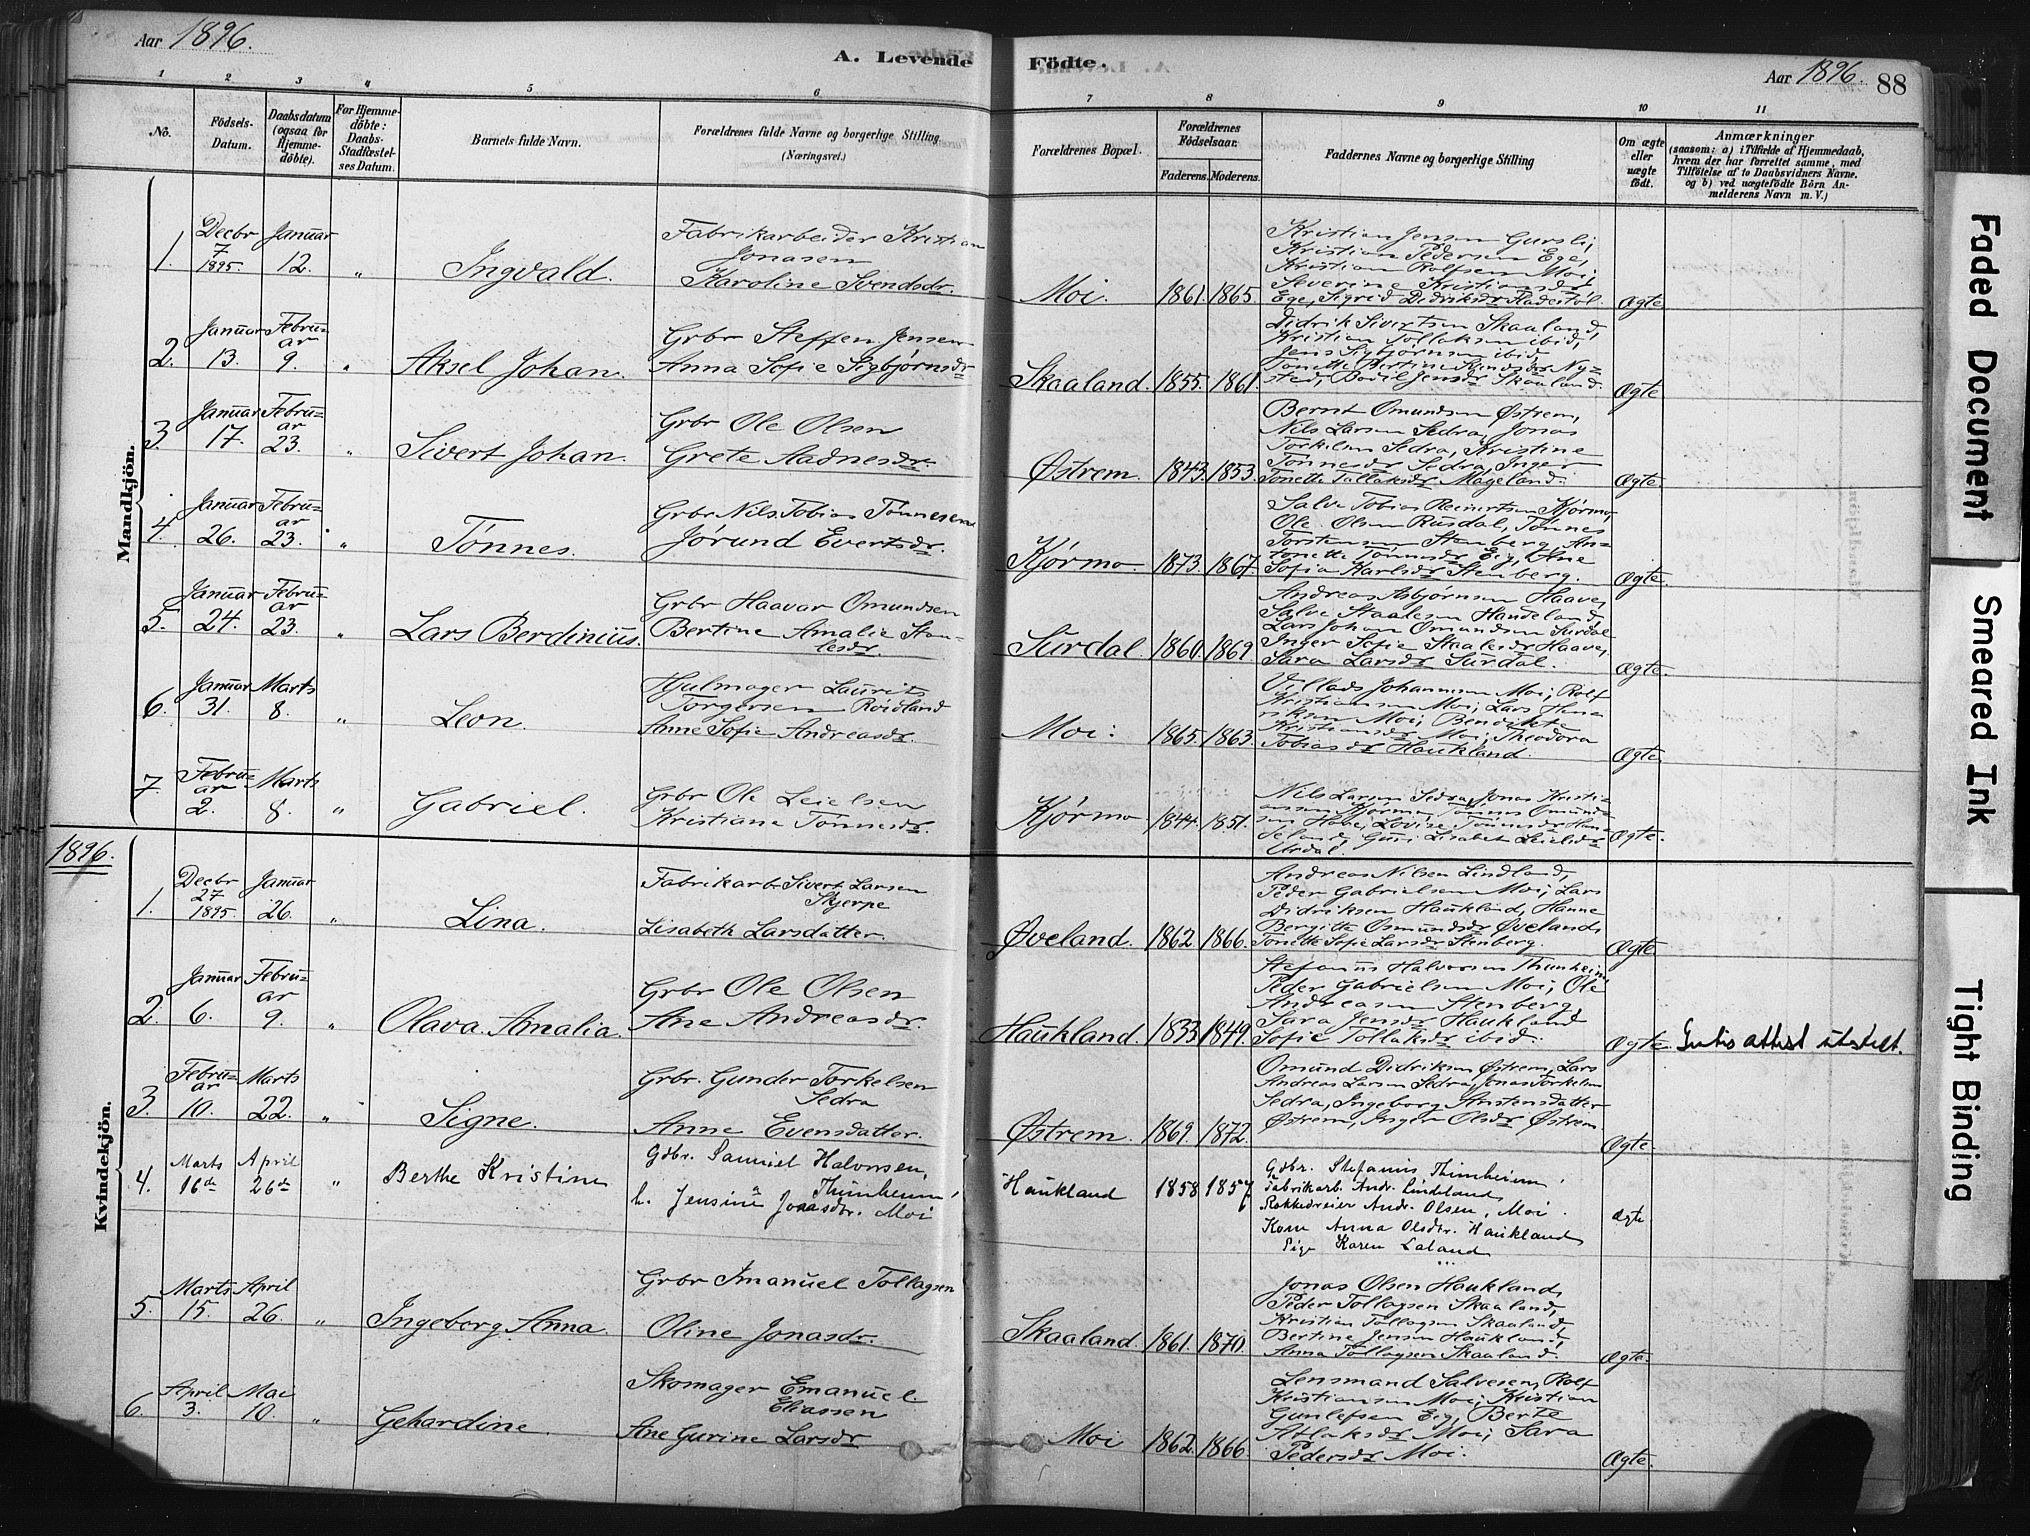 Aar 1896.
A. Levende Fødte.
Aar 1896.
88
1 2 3 4 5 6 7 8 9 10 11
No.
Födsels-Datum.
Daabsdatum (ogsaa for Hjemme-döbte).
For Hjemme-döbte: Daabs-Stadfæstel-ses Datum.
Barnets fulde Navn.
Forældrenes fulde Navne og borgerlige Stilling. (Næringsvei.)
Forældrenes Bopæl.
Forældrenes Födselsaar.
Faderens. Moderens.
Faddernes Navne og borgerlige Stilling
Om ægte eller uægte födt.
Anmærkninger
(saasom: a) i Tilfælde af Hjemmedaab,
hvem der har forrettet samme, med
Tilföielse af to Daabsvidners Navne.
og b) ved uægtefödte Börn An-
melderens Navn m. V.)
Mandkjön.
1. Decbr 7 1895. Januar 12. " Ingvald.
Fabrikarbeider Kristian
Jonasen
Karoline Svendsdr.
Moi. 1861. 1865.
Kristian Jensen Gursli,
Kristian Pedersen Ege,
Kristian Rolfsen Moi,
Severine Kristiansdr
Ege, Sigrid Didriksdr
Ægte
2. Januar 13. Februar 9. " Aksel Johan.
Grbr Steffen Jensen
Anna Sofie Sigbjørnsdr
Skaaland. 1855. 1861.
Didrik Sivertsen Skaaland,
Kristian Tollaksen ibid,
Jens Sigbjørnsen ibid,
Tonette Bertine Svendsdr Ny-
sted, Bodil Jensdr Skaaland.
Ægte
3. Januar 17. Februar 23. " Sivert Johan.
Grbr Ole Olsen
Grete Aadnesdr.
Østrem. 1843. 1853.
Bernt Omundsen Østrem,
Nils Larsen Sedra, Jonas
Torkelsen Sedra, Kristine
Tønnesdr Sedra, Inger
Tonette Tollaksdr Mageland.
Ægte.
4. Januar 26. Februar 23. " Tønnes.
Grbr Nils Tobias Tønnesen
Jørund Evertsdr.
Kjørmo 1873. 1867.
Salve Tobias Reinertsen Kjørmo,
Ole Olsen Rusdal, Tønnes
Torstensen Stenberg, An-
tonette Tønnesdr Eig, Ane
Sofie Karlsdr Stenberg.
Ægte.
5. Januar 24. Februar 23. " Lars Berdinius.
Grbr Haavar Omundsen
Bertine Amalie Staa-
lesdr.
Surdal. 1860. 1869
Andreas Asbjørnsen Haave,
Salve Staalesen Handeland,
Lars Johan Omundsen Surdal
Inger Sofie Staalesdr Haave,
Sara Larsdr Surdal.
Ægte.
6. Januar 31. Marts 8. " Leon.
Hjulmager Laurits
Torgersen Røidland
Anne Sofie Andreasdr.
Moi. 1865. 1863.
Villads Johannesen Moi, Rolf
Kristiansen Moi, Lars Hen-
riksen Moi, Bendikte
Kristiansdr Moi, Theodora
Tobiasdr Haukland.
Ægte.
7. Februar 2. Marts 8. " Gabriel.
Grbr Ole Leielsen
Kristiane Tønnesdr.
Kjørmo 1844. 1851.
Nils Larsen Sedra, Jonas Kristi-
ansen Kjørmo, Tønnes Omund-
sen Hove, Lovise Tønnesdr Han-
deland, Guri Lisabet Leielsdr
Urdal.
Ægte.
1896.
Kvindekjön.
1. Decbr 27 1895. Januar 26. " Lina.
Fabrikarb. Sivert Larsen
Skjerpe
Lisabeth Larsdatter.
Øveland. 1862 1866.
Andreas Nilsen Lindland,
Peder Gabrielsen Moi, Lars
Didriksen Haukland, Hanne
Bergitte Osmundsdr Øveland,
Tonette Sofie Larsdr Stenberg.
Ægte.
2. Januar 6. Februar 9. " Olava Amalia.
Grbr Ole Olsen
Ane Andreasdr.
Haukland. 1833. 1849.
Stefanus Halvorsen Thunheim,
Peder Gabrielsen Moi, Ole
Andreasen Stenberg,
Sara Jensdr Haukland
Sofie Tollaksdr ibid.
Ægte. attest utstelt.
3. Februar 10. Marts 22. " Signe.
Grbr. Gunder Torkelsen
Sedra
Anne Evensdatter.
Østrem. 1869. 1872.
Omund Didriksen Østrem, Lars
Andreas Larsen Sedra, Jonas Torkelsen
Sedra, Ingeborg Anstensdatter
Østrem, Inger Olsdr Østrem
Ægte.
4. Marts 16de April 26de " Berthe Kristine
Gdbr. Samuel Halvorsen,
Thunheim,
h. Jensine Jonasdtr. Moi
Haukland 1858 1857
Gdbr. Stefanus Thunheim,
Fabrikarb. Andr. Lindeland,
Rokkedreier Andr. Olsen, Moi.
Kone Anna Olsdtr. Haukland,
Pige Karen Laland
Ægte
5. Marts 15. April 26. " Ingeborg Anna.
Grbr Imanuel Tollagsen
Oline Jonasdr.
Skaaland. 1861. 1870.
Jonas Olsen Haukland,
Peder Tollagsen Skaaland,
Kristian Tollagsen Skaaland,
Bertine Jensen Haukland,
Anna Tollagsen Skaaland.
Ægte.
6. April 3. Mai 10. " Gehardine.
Skomager Emanuel
Eliassen
Ane Gurine Larsdr
Moi 1862. 1866.
Lensmand Salvesen, Rolf
Kristiansen Moi, Kristian
Gunlefsen Eig, Berte
Atlaksdr Moi, Sara
Pedersdr Moi.
Ægte.
Faded Document
Smeared Ink
Tight Binding